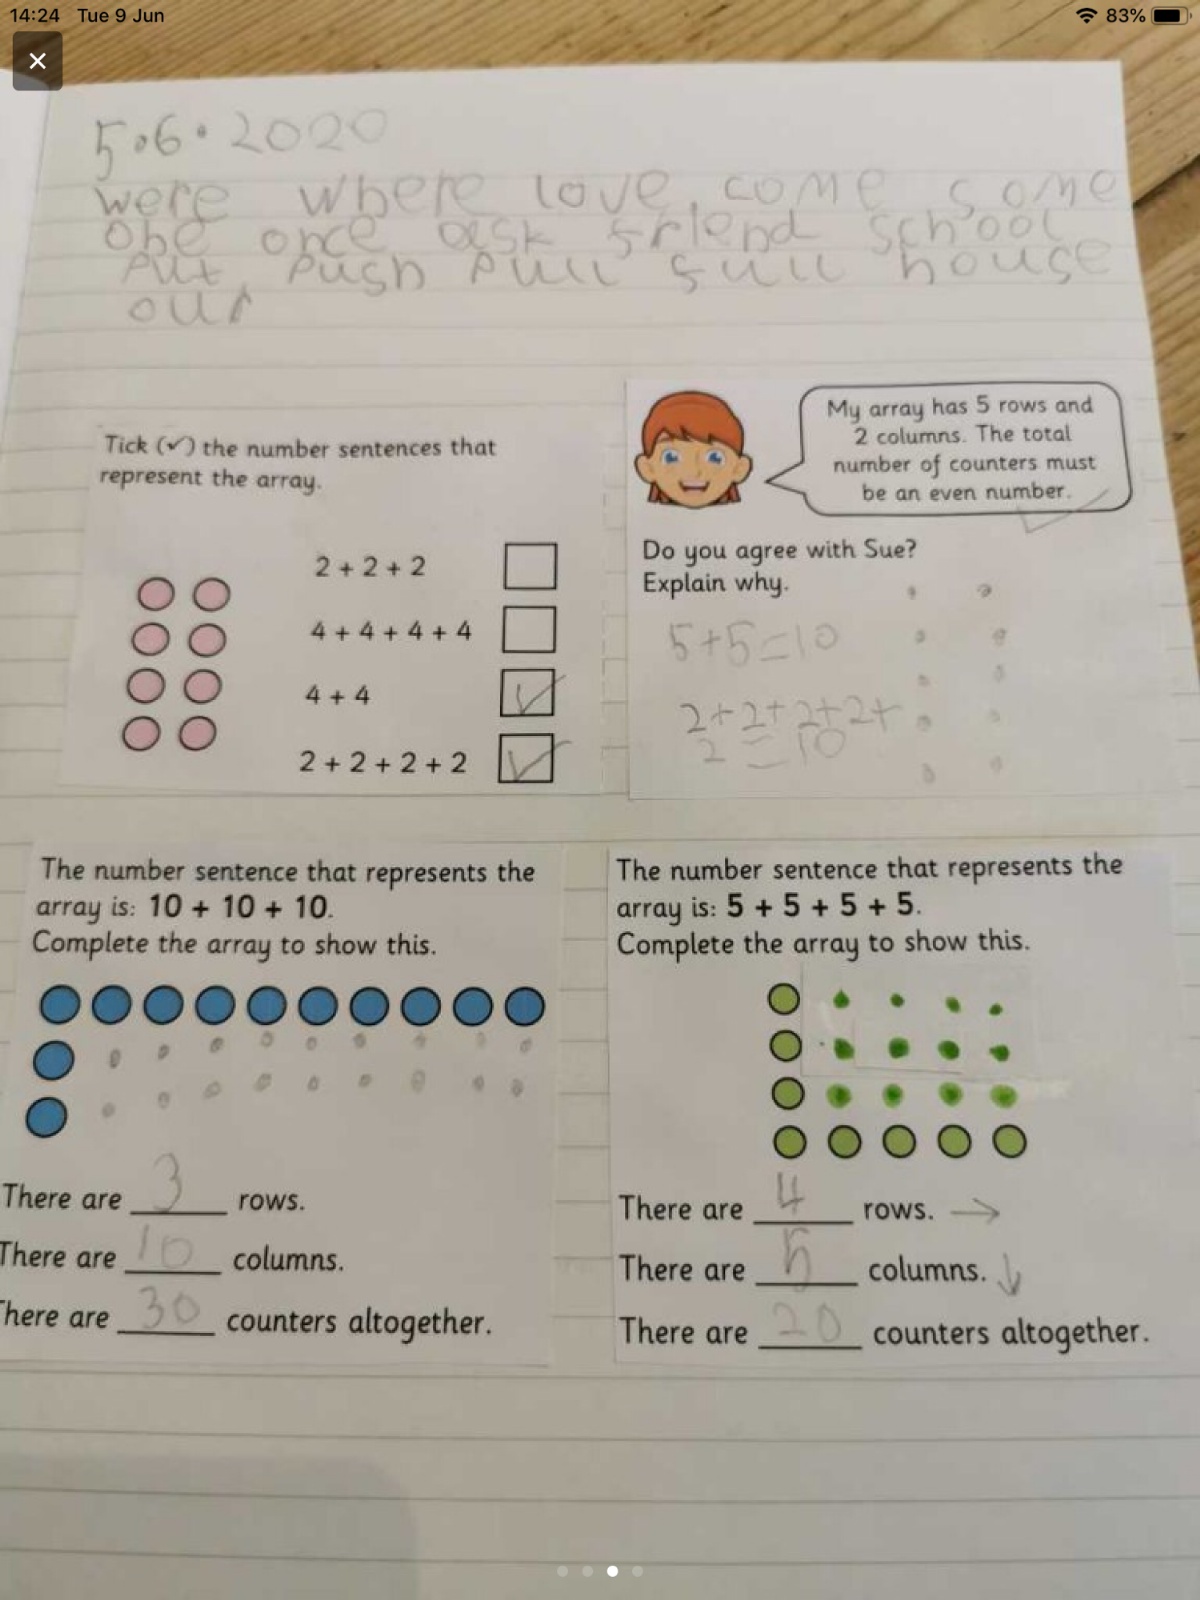 14:24 Tue 9 Jun
83%
5.6.2020
were where love come some
one once ask friend school
put push pull full house
our
Tick (✓) the number sentences that
represent the array.
2 + 2 + 2
4 + 4 + 4 + 4
4 + 4
2 + 2 + 2 + 2
My array has 5 rows and
2 columns. The total
number of counters must
be an even number.
Do you agree with Sue?
Explain why.
5+5=10
2+2+2+2+
2=10
The number sentence that represents the
array is: 10 + 10 + 10.
Complete the array to show this.
There are 3 rows.
There are 10 columns.
There are 30 counters altogether.
The number sentence that represents the
array is: 5 + 5 + 5 + 5.
Complete the array to show this.
There are 4 rows. →
There are 5 columns. ↓
There are 20 counters altogether.